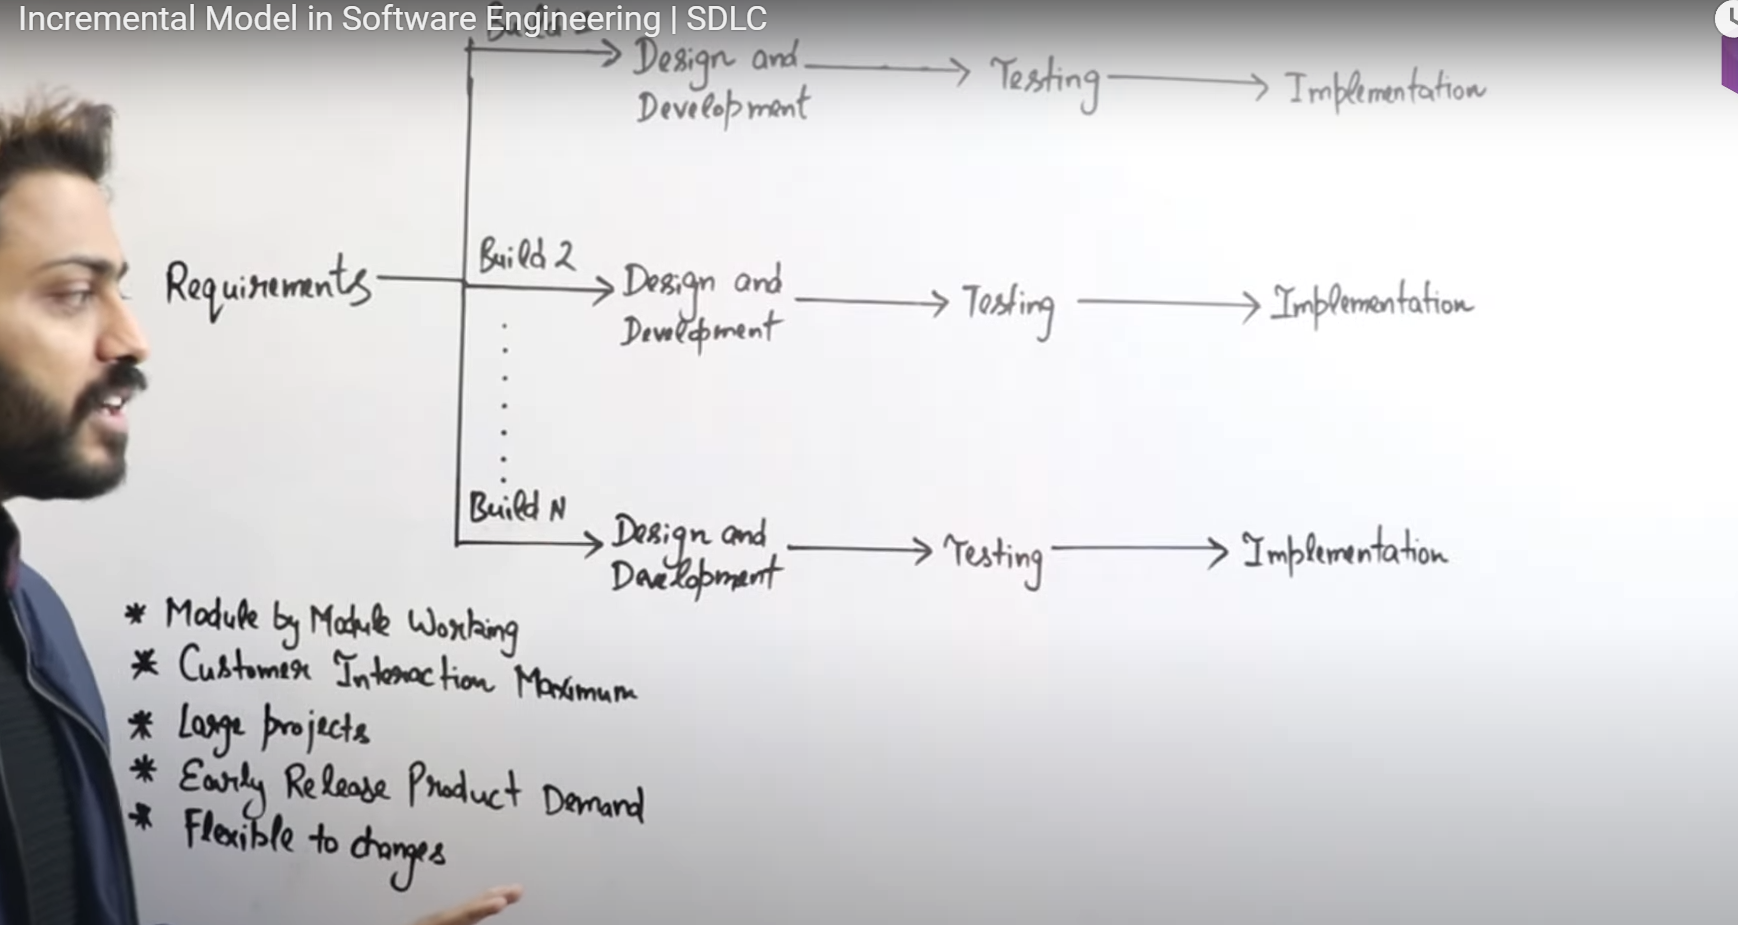 Incremental Model in Software Engineering | SDLC
Build
Design and
Development
Testing
Implementation
Requirements
Build 2
Design and
Development
Testing
Implementation
Build N
Design and
Development
Testing
Implementation
* Module by Module Working
* Customer Interaction Maximum
* Large projects
* Early Release Product Demand
* Flexible to changes